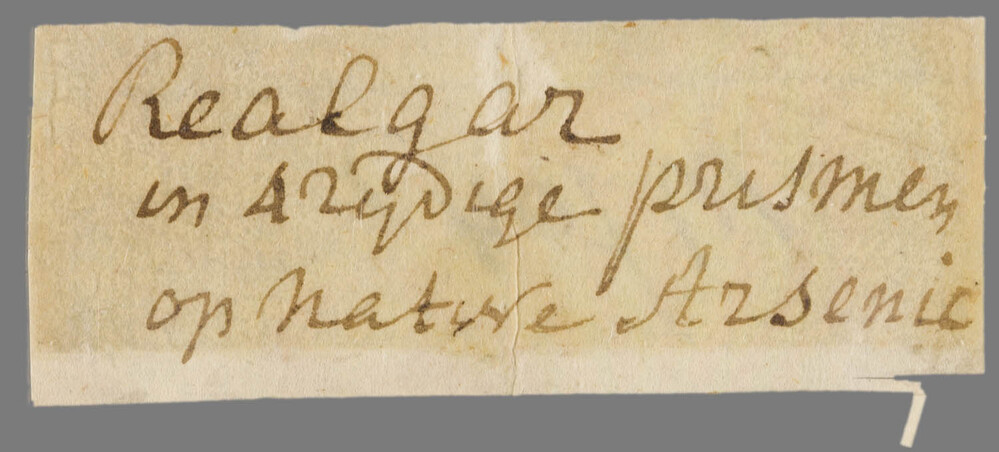 Realgar
in 4 zijdige prismen
op native Arsenic